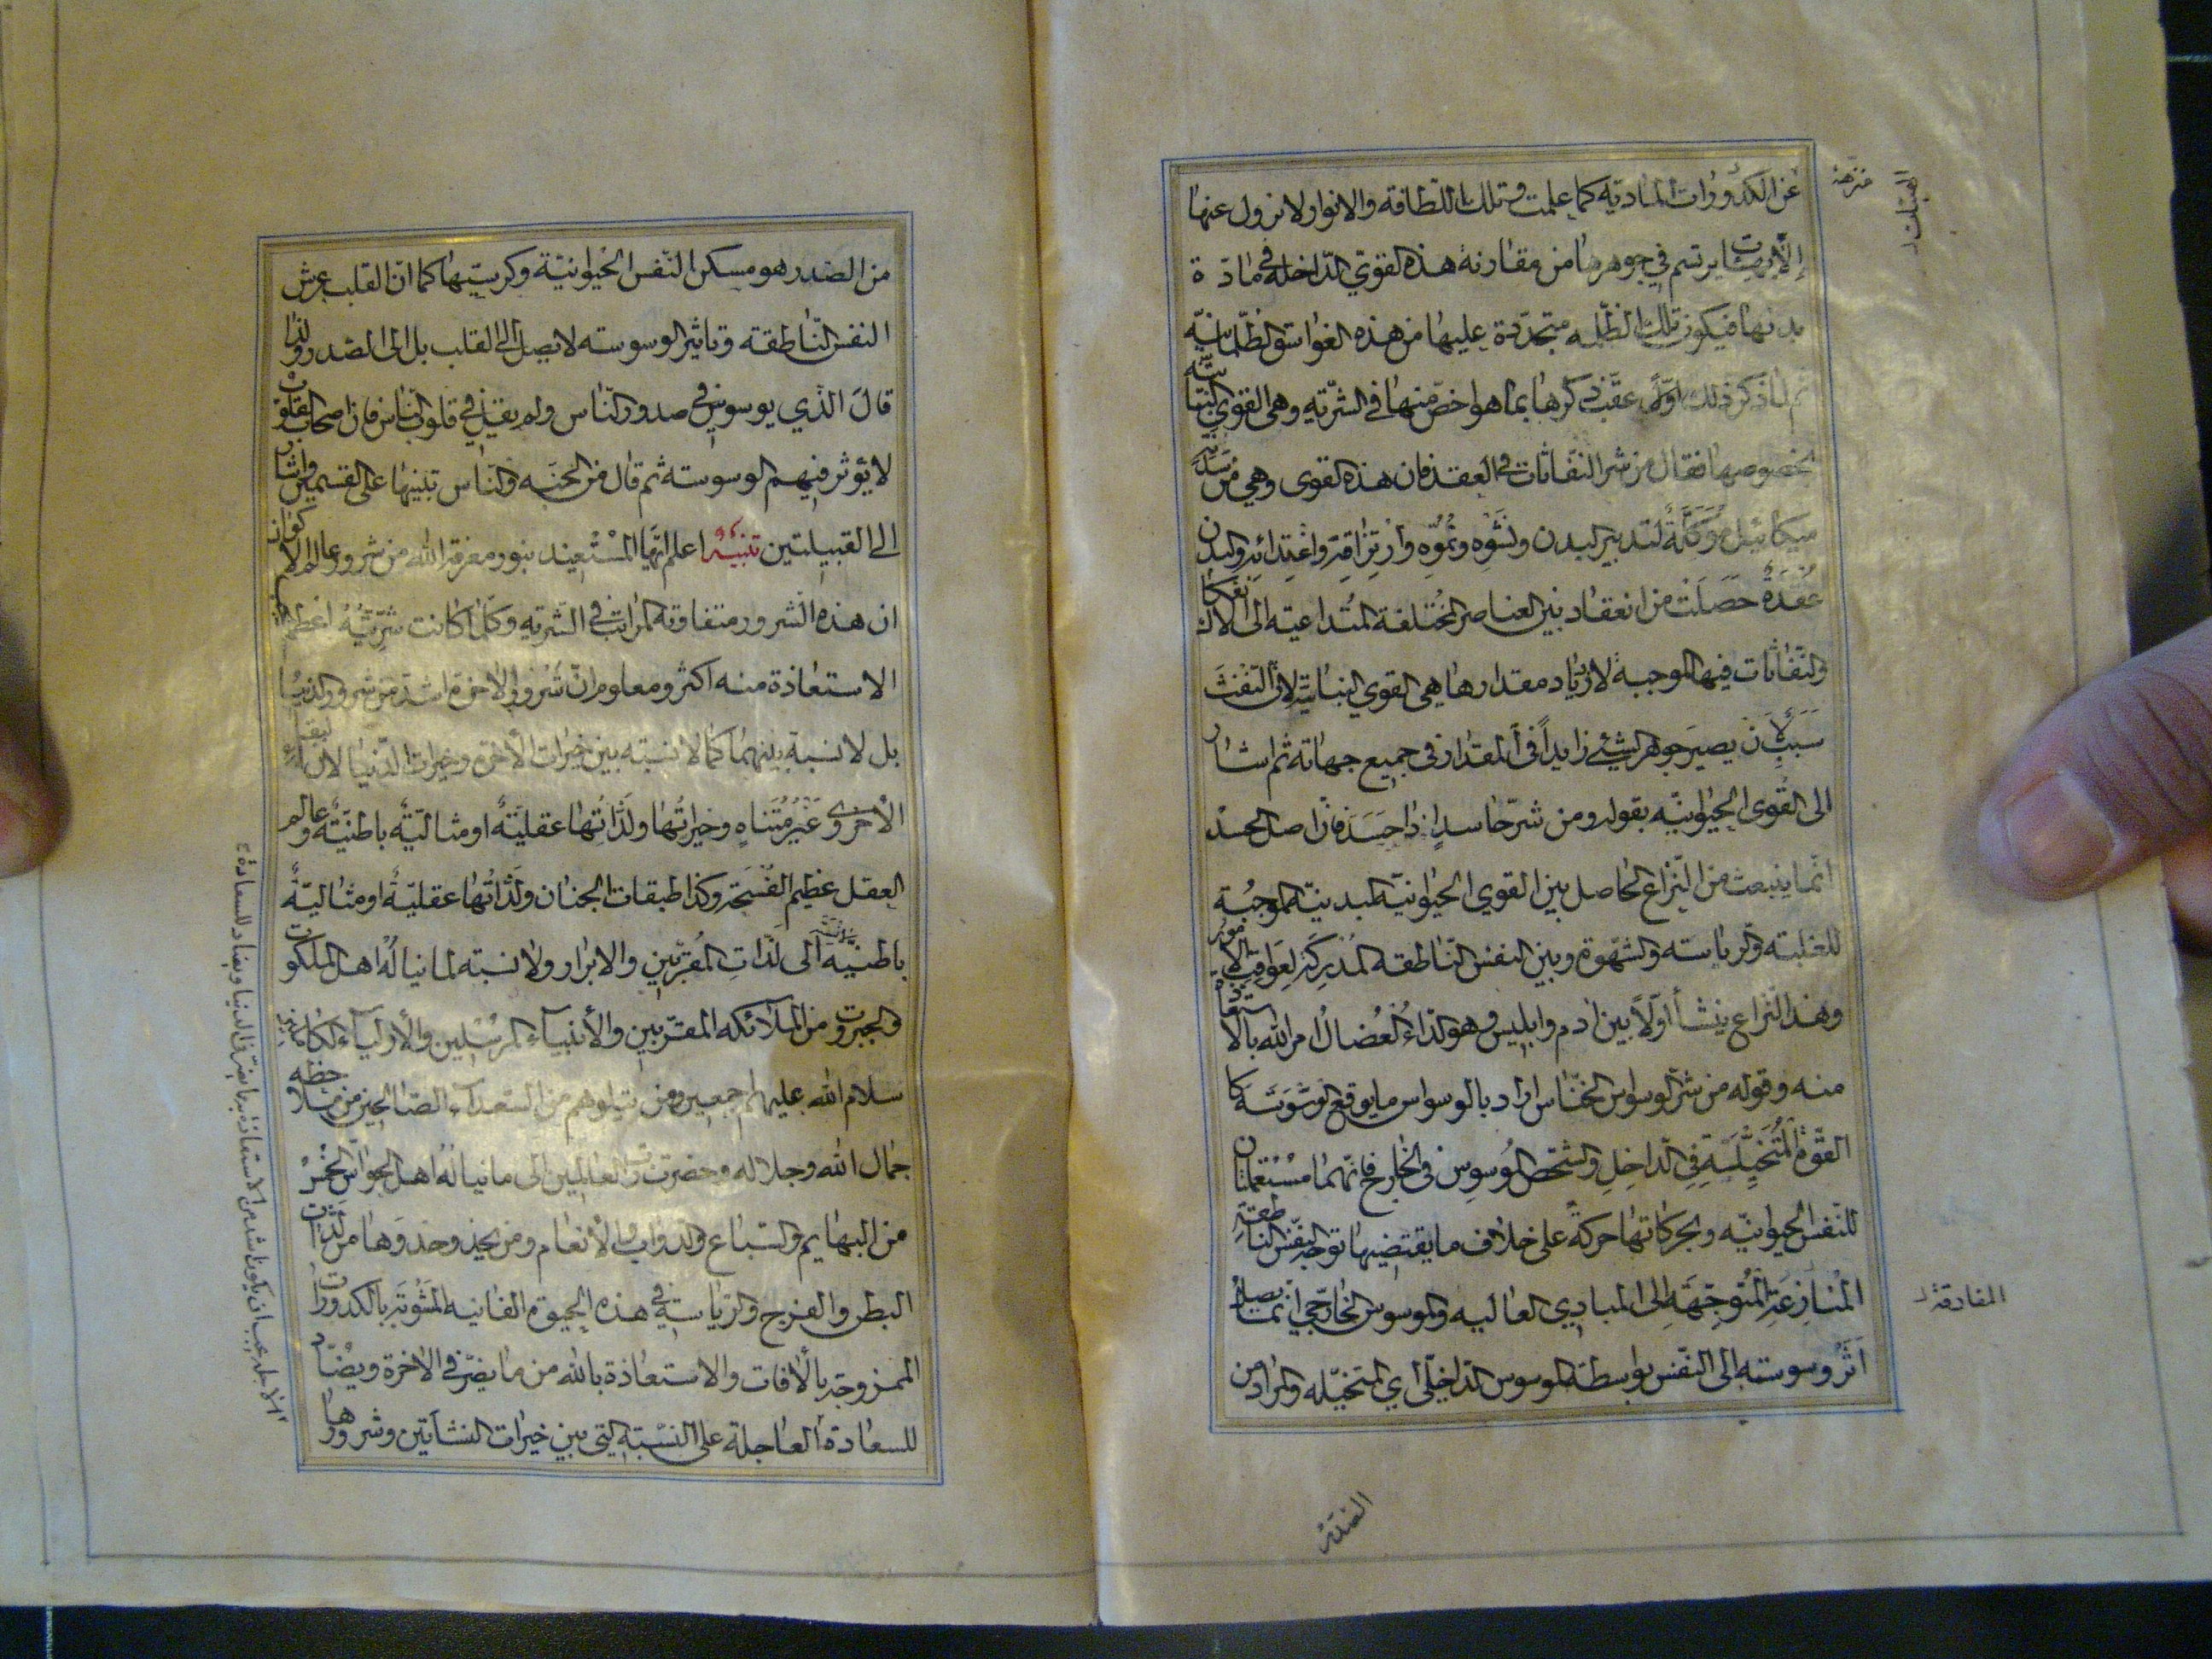 عن الكدورات المادية كما علمت وتلك اللطافة والانوار لا تزول عنها
منزهة
إلا بهيئات يرتسم في جوهرها من مقارنة هذه القوى الداخلة في مادة
بدنها فيكون تلك الظلمه متجددة عليها من هذه الغواسق الظلمانيه
ثم لما ذكر ذلك اولا عقب ذكرها بما هو اخص منها في الشرية وهي القوى النباتية
بخصوصها فقال من شر النفاثات في العقد فان هذه القوى وهي
ميكائيل مُوَكَّلَةٌ لتدبير البدن ونشوه ونموه وارتزاقه واغتدائه والبدن
عُقدة حصلت من انعقاد بين العناصر المختلفة المتداعيته الى الانفكاك
والنفاثات فيها الموجبة لازدياد مقدارها هي القوى النباتية لان النفث
سبب لان يصير جوهر الشيء زايداً في المقدار في جميع جهاته ثم اشار
الى القوى الحيوانيه بقوله ومن شر حاسد اذا حسد فان اصل الحسد
انما ينبعث من النزاع الحاصل بين القوى الحيوانية البدنية الموجبة
للغلبته والرياسته والشهوة وبين النفس الناطقه المدركة لعواقب الامور
وهذا النزاع ينشأ اولاً بين ادم وابليس وهو الداء العضال امر الله بالاستعاذة
منه وقوله من شر الوسواس الخناس اراد بالوسواس ما يوقع الوسوسة كا
القوة المتخيلة في الداخل والشخص الموسوس في الخارج فانهما مستعملتان
للنفس الحيوانيه وبحركاتها حركة على خلاف ما يقتضيها توجه النفس الناطقة
المنازعة المتوجهه الى المبادي العاليه والموسوس الخارجي انما يصل
المفارقة
اثر وسوسته الى النفس بواسطة الموسوس الداخلي اي المتخيله والمراد من
الصدر
من الصدر هو مسكن النفس الحيوانية وكرسيها كما ان القلب عرش
النفس الناطقة وتاثير الوسوسته لا يصل الى القلب بل الى الصدر ولذا
قال الذي يوسوس في صدور الناس ولم يقل في قلوب الناس فان اصحاب القلوب
لا يؤثر فيهم الوسوسة ثم قال من الجنه والناس تنبيها على القسمين واشار
الى القبيلتين تنبيه اعلم ايها المستعيذ بنور معرفة الله من شرور عالم الاكوان
ان هذه الشرور متفاوتة المراتب في الشرية وكلما كانت شريته اعظم
الاستعاذة منه اكثر ومعلوم ان شرور الاخرة اشد من شرور الدنيا
بل لا نسبة بينهما كما لا نسبته بين خيرات الاخرة وخيرات الدنيا لان البقاء
الأخروى غير متناه وخيراتها ولذاتها عقلية او مثالية باطنية وعالم
العقل عظيم الفسحة وكذا طبقات الجنان ولذاتها عقلية او مثالية
باطنية الى لذات المقربين والابرار ولا نسبته لما نياله اهل الملكوت
والجبروت من الملائكه المقربين والأنبياء المرسلين والأولياء الكاملين
سلام الله عليهم اجمعين ومن يتلوهم من السعداء الصالحين من ملاحظه
جمال الله وجلاله وحضرت رب العالمين الى ما نياله اهل الحواس الخمس
من البهايم والسباع والدواب والانعام ومن يحذو حذوها من لذات
البطن والفرج والرياسته في هذه الحيوة الفانيه المشوبة بالكدورات
الممزوجة بالافات والاستعاذة بالله من ما يضر في الاخرة ويضاد
للسعادة العاجلة على النسبته التي بين خيرات النشأتين وشرورها